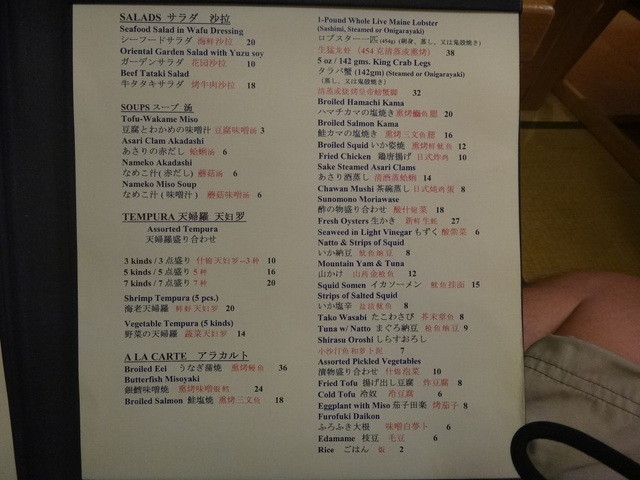 SALADS サラダ 沙拉
Seafood Salad in Wafu Dressing
シーフードサラダ 海鲜沙拉 20
Oriental Garden Salad with Yuzu soy
ガーデンサラダ 花园沙拉 10
Beef Tataki Salad
牛タタキサラダ 烤牛肉沙拉 18
SOUPS スープ 汤
Tofu-Wakame Miso
豆腐とわかめの味噌汁 豆腐味噌汤 3
Asari Clam Akadashi
あさりの赤だし 蛤蜊汤 6
Nameko Akadashi
なめこ汁(赤だし) 蘑菇汤 6
Nameko Miso Soup
なめこ汁(味噌) 蘑菇味噌汤 6
TEMPURA 天婦羅 天妇罗
Assorted Tempura
天婦羅盛り合わせ
3 kinds / 3 点盛り 什锦天妇罗--3 种 10
5 kinds / 5 点盛り 5 种 16
7 kinds / 7 点盛り 7 种 20
Shrimp Tempura (5 pcs.)
海老天婦羅 鲜虾天妇罗 20
Vegetable Tempura (5 kinds)
野菜の天婦羅 蔬菜天妇罗 14
A LA CARTE アラカルト
Broiled Eel うなぎ蒲焼 熏烤鳗鱼 36
Butterfish Misoyaki
銀鱈味噌焼 熏烤味噌银鳕 24
Broiled Salmon 鮭塩焼 熏烤三文鱼 18
1-Pound Whole Live Maine Lobster
(Sashimi, Steamed or Onigarayaki)
ロブスター一匹 (454g) (刺身、蒸し、又は鬼殻焼)
生猛龙虾 (454 克清蒸或熏烤) 38
5 oz / 142 gms. King Crab Legs
タラバ蟹 (142gm) (Steamed or Onigarayaki)
(蒸し、又は鬼殻焼き)
清蒸或烧烤皇帝螃蟹脚 32
Broiled Hamachi Kama
ハマチカマの塩焼き 熏烤鰤鱼腮 20
Broiled Salmon Kama
鮭カマの塩焼き 熏烤三文鱼腮 16
Broiled Squid いか姿焼 熏烤鲜鱿鱼 12
Fried Chicken 鶏唐揚げ 日式炸鸡 10
Sake Steamed Asari Clams
あさり酒蒸し 清酒蒸蛤蜊 14
Chawan Mushi 茶碗蒸し 日式炖鸡蛋 8
Sunomono Moriawase
酢の物盛り合わせ 酸什锦菜 18
Fresh Oysters 生かき 新鲜生蚝 27
Seaweed in Light Vinegar もずく 酸紫菜 6
Natto & Strips of Squid
いか納豆 鱿鱼纳豆 8
Mountain Yam & Tuna
山かけ 山药金枪鱼 12
Squid Somen イカソーメン 鱿鱼挂面 15
Strips of Salted Squid
いか塩辛 盐渍鱿鱼 8
Tako Wasabi たこわさび 芥末章鱼 8
Tuna w/ Natto まぐろ納豆 枪鱼纳豆 9
Shirasu Oroshi しらすおろし
小沙汀鱼和萝卜泥 7
Assorted Pickled Vegetables
漬物盛り合わせ 什锦泡菜 10
Fried Tofu 揚げ出し豆腐 炸豆腐 8
Cold Tofu 冷奴 冷豆腐 6
Eggplant with Miso 茄子田楽 烤茄子 8
Furofuki Daikon
ふろふき大根 味噌白萝卜 6
Edamame 枝豆 毛豆 6
Rice ごはん 饭 2